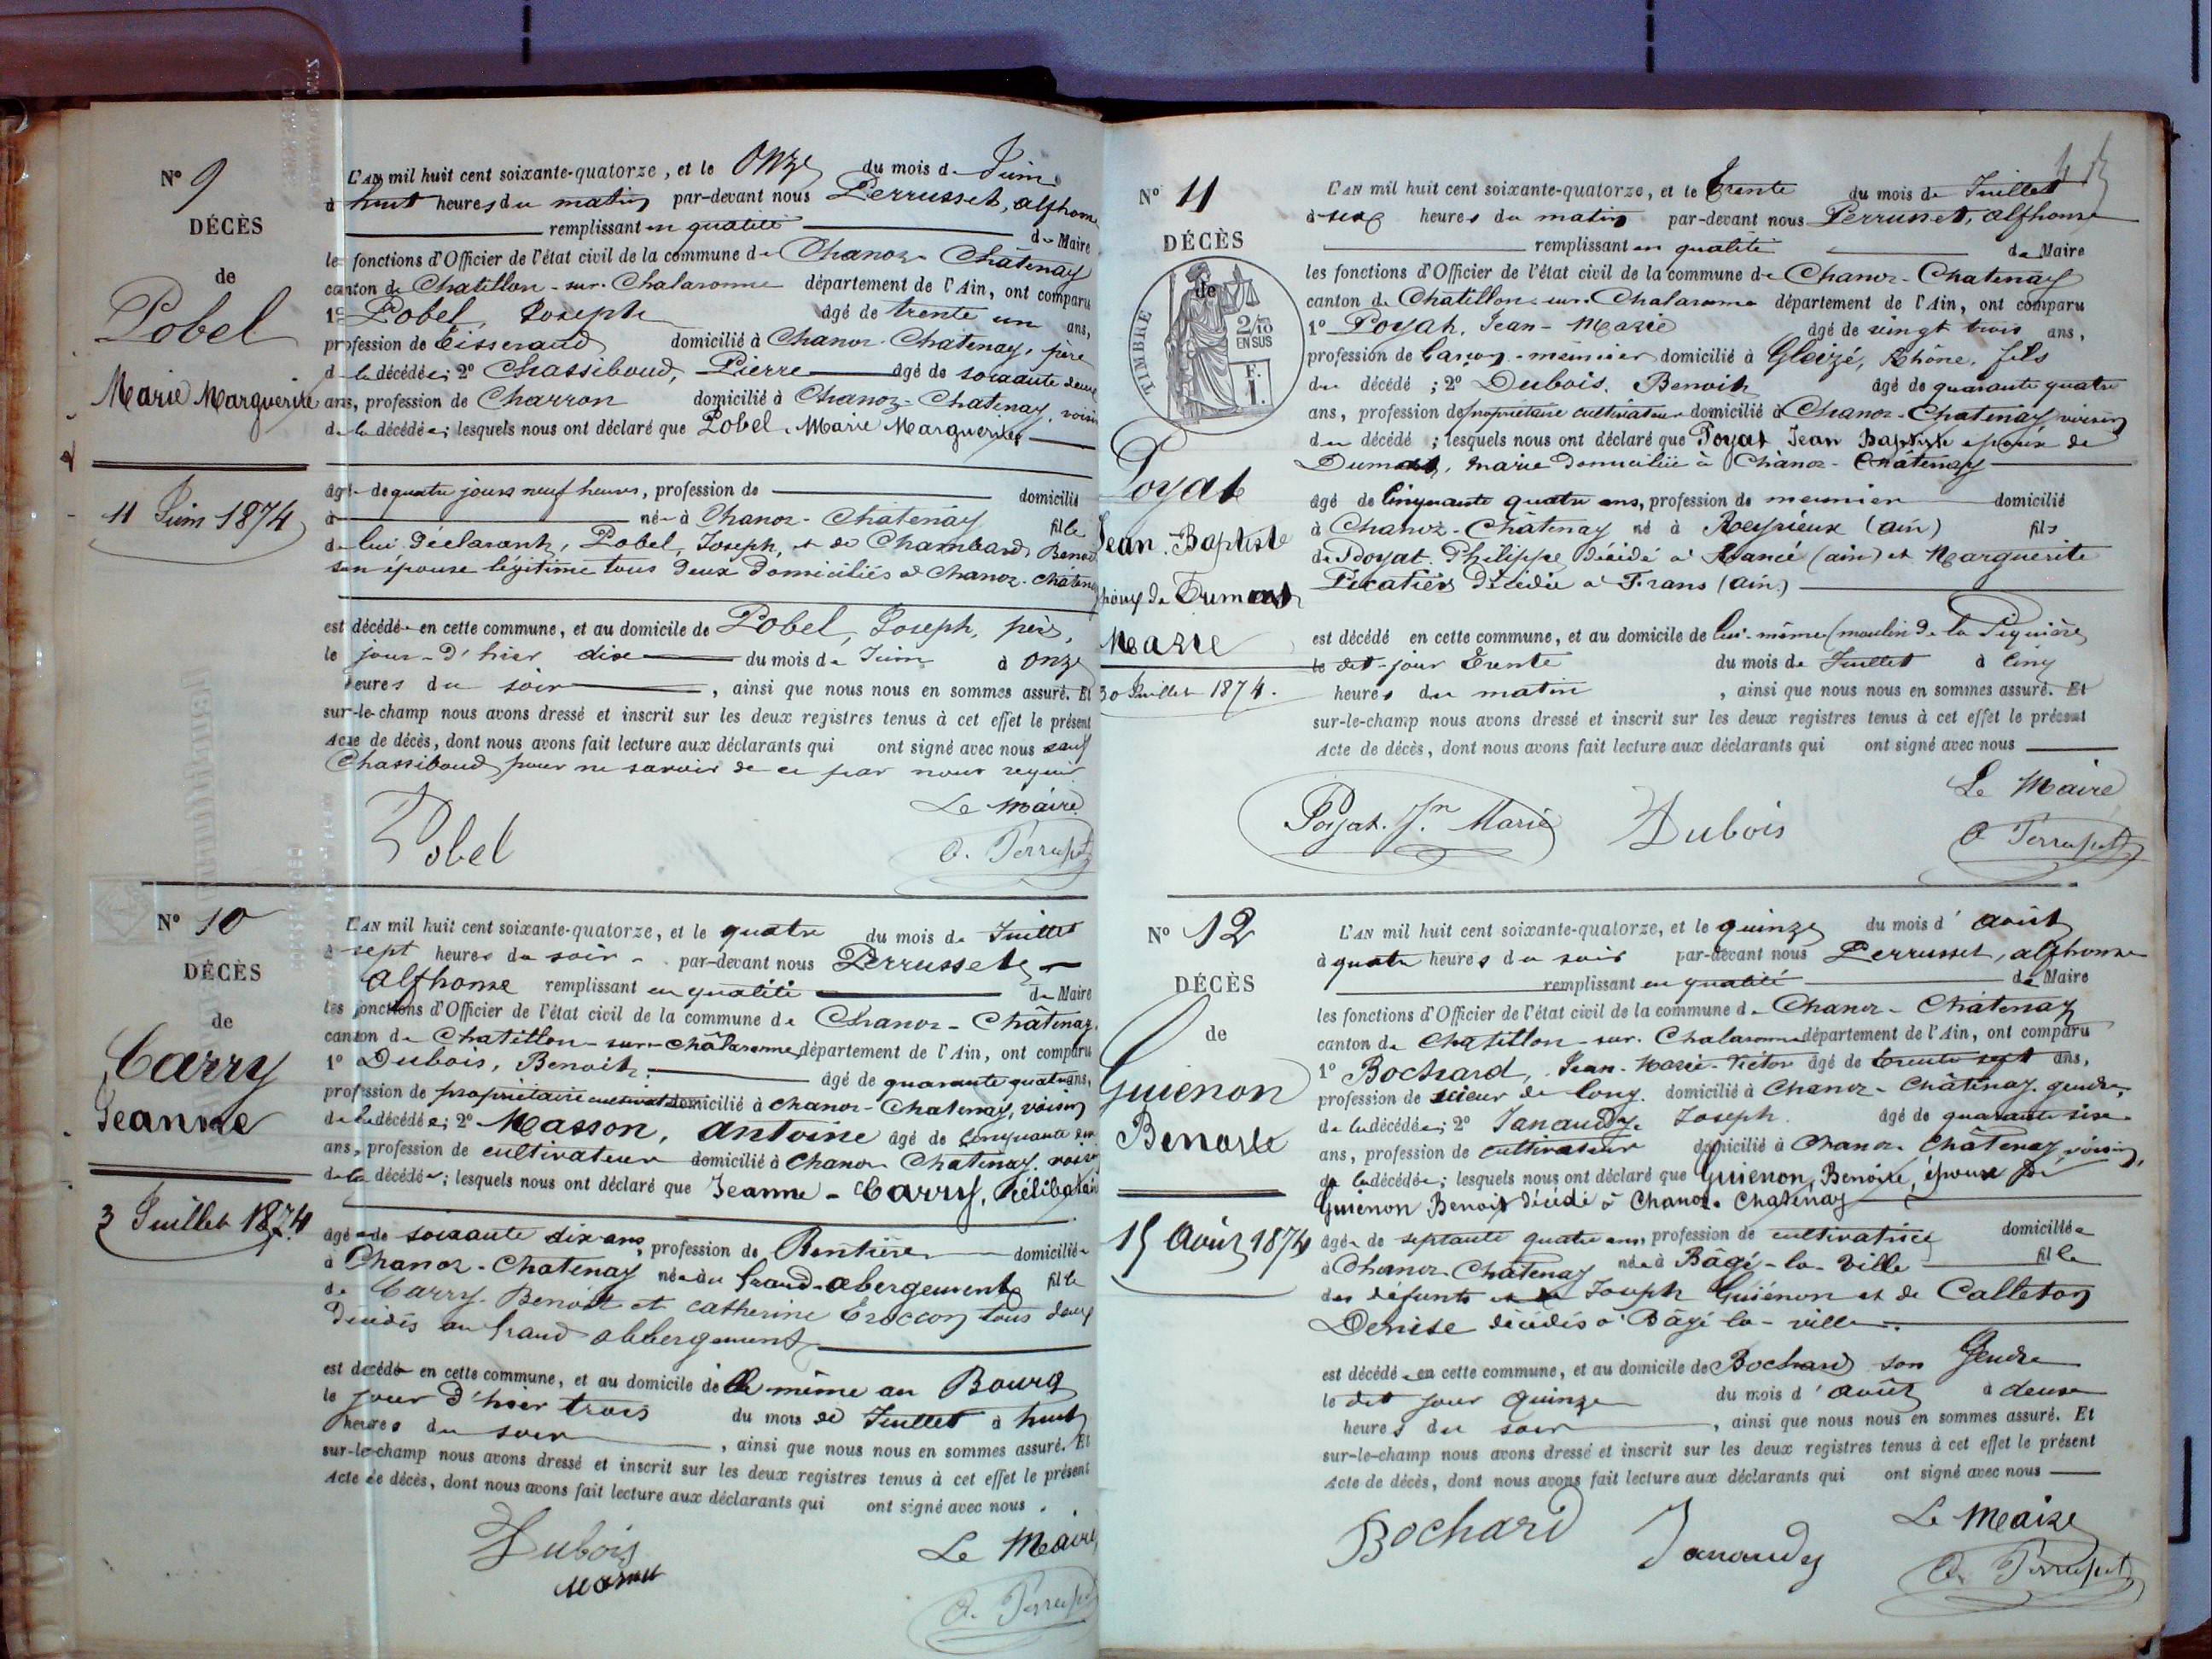 N° 9
DÉCÈS
de
Pobel
Marie Marguerite
11 Juin 1874
L'AN mil huit cent soixante-quatorze, et le Onze du mois de Juin
à huit heures du matin par-devant nous Perrusset, alphonse
remplissant en qualité de Maire
les fonctions d'Officier de l'état civil de la commune de Chanoz Châtenay
canton de Chatillon-sur-Chalaronne département de l'Ain, ont comparu
1° Pobel, Joseph âgé de trente un ans,
profession de Tisserand domicilié à Chanoz-Chatenay, père
de la décédée; 2° Chassiboud, Pierre âgé de soixante deux
ans, profession de Charron domicilié à Chanoz-Chatenay, voisin
de la décédée; lesquels nous ont déclaré que Pobel Marie Marguerite
âgée de quatre jours neuf heures, profession de domicilié
à née à Chanoz-Chatenay fille
de lui déclarant, Pobel, Joseph, et de Chambard
son épouse légitime tous deux domiciliés à Chanoz-Chatenay
est décédée en cette commune, et au domicile de Pobel, Joseph, père,
le jour d'hier dix du mois de Juin à onze
heures du soir, ainsi que nous nous en sommes assuré. Et
sur-le-champ nous avons dressé et inscrit sur les deux registres tenus à cet effet le présent
Acte de décès, dont nous avons fait lecture aux déclarants qui ont signé avec nous sauf
Chassiboud pour ne savoir de ce par nous requis
Le Maire
Pobel
A. Perrusset
N° 10
DÉCÈS
de
Carry
Jeanne
3 Juillet 1874
L'AN mil huit cent soixante-quatorze, et le quatre du mois de Juillet
à sept heures du soir par-devant nous Perrusset
Alphonse remplissant en qualité de Maire
les fonctions d'Officier de l'état civil de la commune de Chanoz-Châtenay
canton de Chatillon-sur-Châlaronne, département de l'Ain, ont comparu
1° Dubois, Benoit âgé de quarante quatre ans,
profession de propriétaire cultivateur domicilié à Chanoz-Chatenay, voisin
de la décédée; 2° Masson, Antoine âgé de cinquante
ans, profession de cultivateur domicilié à Chanoz Chatenay, voisin
de la décédée; lesquels nous ont déclaré que Jeanne Carry, Célibataire
âgée de soixante dix ans, profession de Rentière domiciliée
à Chanoz-Chatenay née au Grand-abergement fille
de Carry Benoit et Catherine Troccon tous deux
décédés au Grand abbergement
est décédée en cette commune, et au domicile de elle même au Bourg
le jour d'hier trois du mois de Juillet à huit
heures du soir, ainsi que nous nous en sommes assuré. Et
sur-le-champ nous avons dressé et inscrit sur les deux registres tenus à cet effet le présent
Acte de décès, dont nous avons fait lecture aux déclarants qui ont signé avec nous.
Dubois
Masson
Le Maire
A. Perrusset
N° 11
DÉCÈS
de
TIMBRE
2/10
EN SUS
F.
1.
Poyat
Jean-Baptiste
époux de Dumont
Marie
30 Juillet 1874.
L'AN mil huit cent soixante-quatorze, et le trente du mois de Juillet
à six heures du matin par-devant nous Perrusset, alphonse
remplissant en qualité de Maire
les fonctions d'Officier de l'état civil de la commune de Chanoz-Chatenay
canton de Châtillon-sur-Chalaronne département de l'Ain, ont comparu
1° Poyat, Jean-Marie âgé de vingt trois ans,
profession de Garçon-meunier domicilié à Gleizé, Rhône, fils
du décédé; 2° Dubois, Benoit âgé de quarante quatre
ans, profession de propriétaire cultivateur domicilié à Chanoz-Chatenay voisin
du décédé; lesquels nous ont déclaré que Poyat Jean Baptiste époux de
Dumont, Marie domiciliée à Chanoz-Châtenay
âgé de cinquante quatre ans, profession de meunier domicilié
à Chanoz-Châtenay né à Reyrieux (ain) fils
de Poyat Philippe décédé à Rancé (ain) et Marguerite
décédée à Frans (ain)
est décédé en cette commune, et au domicile de lui-même (moulin de la
le dit jour trente du mois de Juillet à cinq
heures du matin, ainsi que nous nous en sommes assuré. Et
sur-le-champ nous avons dressé et inscrit sur les deux registres tenus à cet effet le présent
Acte de décès, dont nous avons fait lecture aux déclarants qui ont signé avec nous
Le Maire
Poyat. Jn Marie
Dubois
A Perrusset
N° 12
DÉCÈS
de
Guienon
Benoite
15 Août 1874
L'AN mil huit cent soixante-quatorze, et le quinze du mois d'août
à quatre heures du soir par-devant nous Perrusset, alphonse
remplissant en qualité de Maire
les fonctions d'Officier de l'état civil de la commune de Chanoz-Châtenay
canton de Chatillon-sur-Chalaronne département de l'Ain, ont comparu
1° Bochard, Jean-Marie-Victor âgé de trente sept ans,
profession de scieur de long domicilié à Chanoz-Châtenay gendre,
de la décédée; 2° Janaudy, Joseph âgé de quarante six
ans, profession de cultivateur domicilié à Chanoz-Châtenay voisin,
de la décédée; lesquels nous ont déclaré que Guienon, Benoite, épouse de
Guienon Benoit décédé à Chanoz-Chatenay
âgée de septante quatre ans, profession de cultivatrice domiciliée
à Chanoz-Chatenay née à Bâgé-la-Ville fille
des défunts Joseph Guiénon et de Calleton
Denise décédés à Bâgé-la-ville.
est décédée en cette commune, et au domicile de Bochard son Gendre
le dit jour quinze du mois d'août à deux
heures du soir, ainsi que nous nous en sommes assuré. Et
sur-le-champ nous avons dressé et inscrit sur les deux registres tenus à cet effet le présent
Acte de décès, dont nous avons fait lecture aux déclarants qui ont signé avec nous
Bochard
Janaudy
Le Maire
A. Perrusset